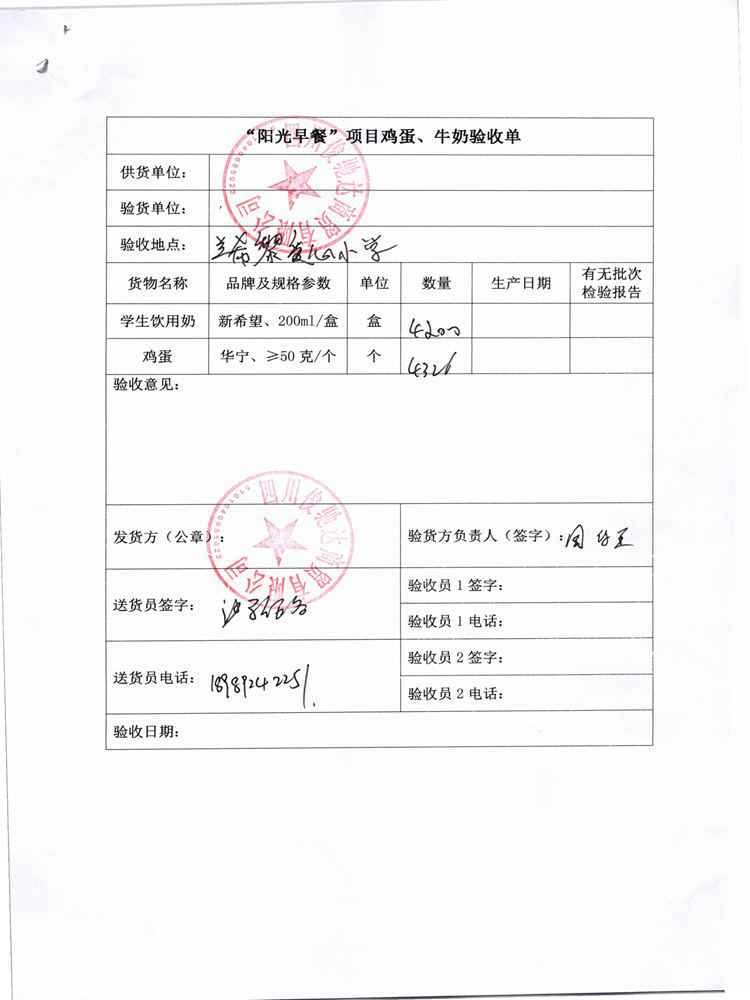 “阳光早餐”项目鸡蛋、牛奶验收单
四川俊驰达商贸有限公司
供货单位：
验货单位：
验收地点： 小学
货物名称 品牌及规格参数 单位 数量 生产日期 有无批次检验报告
学生饮用奶 新希望、200ml/盒 盒 4200
鸡蛋 华宁、≥50克/个 个 4326
验收意见：
四川俊驰达商贸有限公司
发货方（公章）：
验货方负责人（签字）：
送货员签字：
验收员1签字：
验收员1电话：
送货员电话： 18989242251
验收员2签字：
验收员2电话：
验收日期：